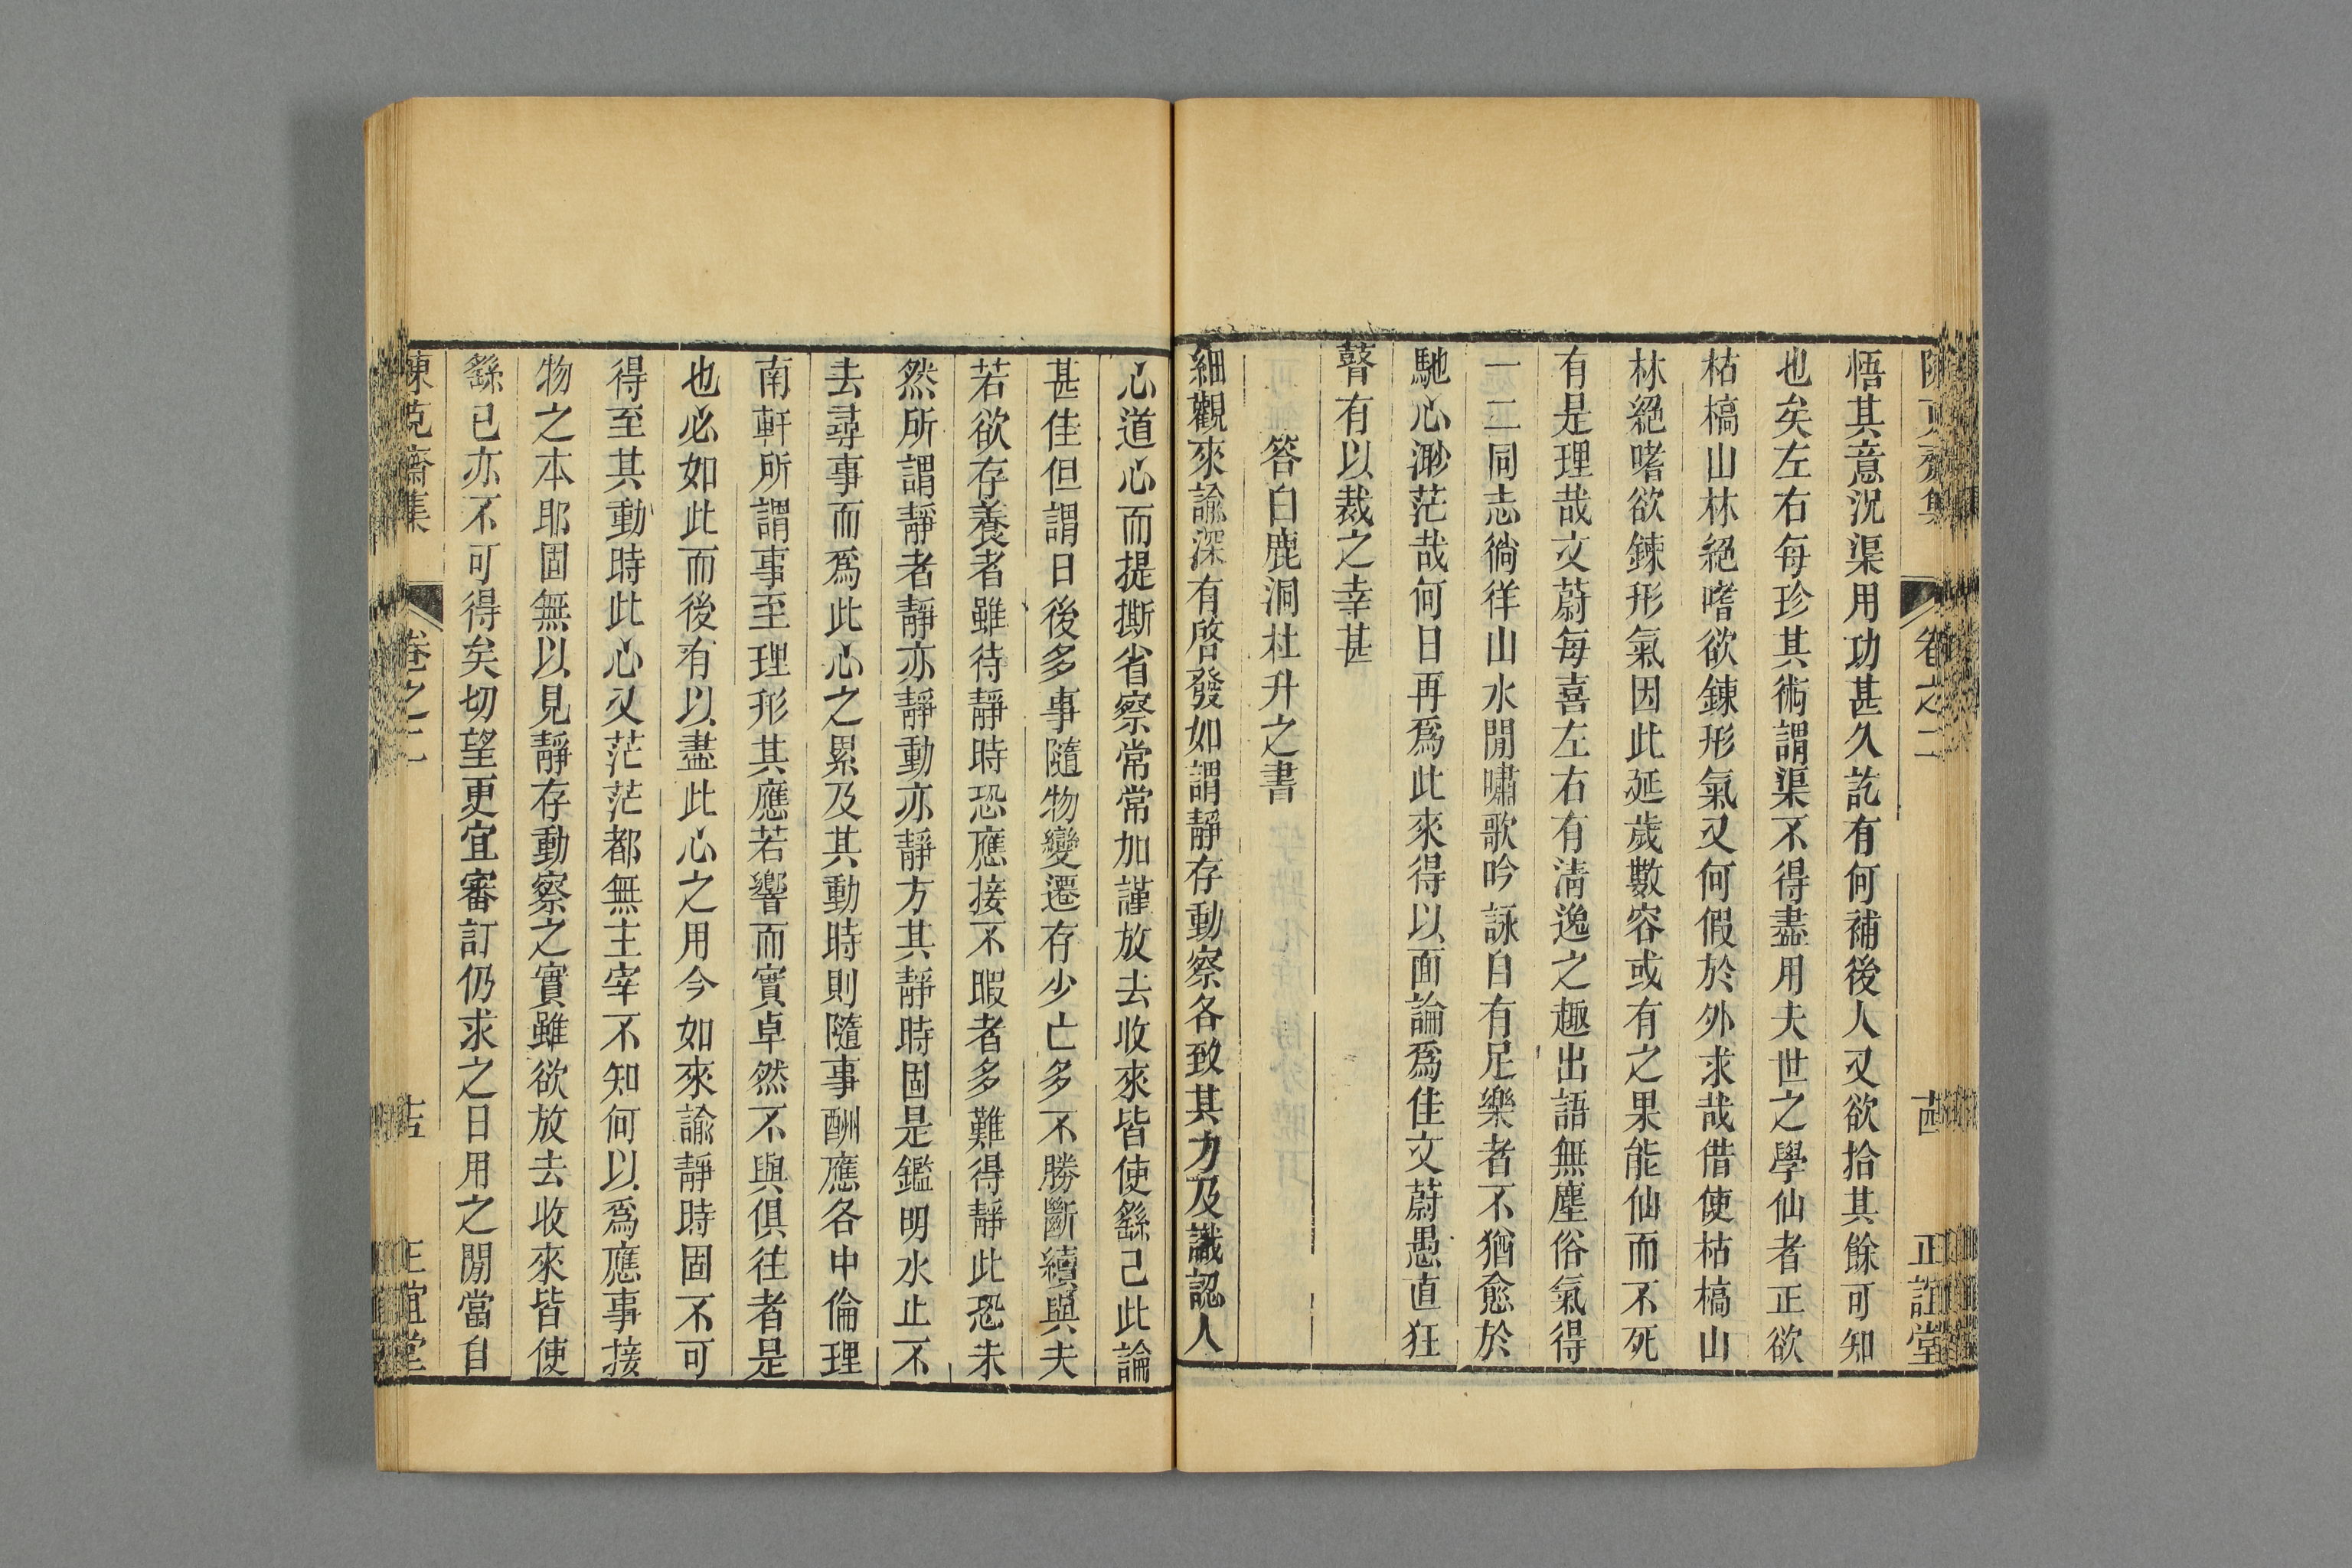 陳克齋集 卷之二 十四 正誼堂
悟其意況渠用功甚久訖有何補後人又欲拾其餘可知
也矣左右每珍其術謂渠不得盡用夫世之學仙者正欲
枯槁山林絕嗜欲鍊形氣又何假於外求哉借使枯槁山
林絕嗜欲鍊形氣因此延歲數容或有之果能仙而不死
有是理哉文蔚每喜左右有淸逸之趣出語無塵俗氣得
一二同志徜徉山水閒嘯歌吟詠自有足樂者不猶愈於
馳心渺茫哉何日再爲此來得以面論爲佳文蔚愚直狂
瞽有以裁之幸甚
答白鹿洞杜升之書
細觀來諭深有啓發如謂靜存動察各致其力及識認人
心道心而提撕省察常常加謹放去收來皆使繇己此論
甚佳但謂日後多事隨物變遷存少亡多不勝斷續與夫
若欲存養者雖待靜時恐應接不暇者多難得靜此恐未
然所謂靜者靜亦靜動亦靜方其靜時固是鑑明水止不
去尋事而爲此心之累及其動時則隨事酬應各中倫理
南軒所謂事至理形其應若響而實卓然不與俱往者是
也必如此而後有以盡此心之用今如來諭靜時固不可
得至其動時此心又茫茫都無主宰不知何以爲應事接
物之本耶固無以見靜存動察之實雖欲放去收來皆使
繇已亦不可得矣切望更宜審訂仍求之日用之閒當自
陳克齋集 卷之二 十五 正誼堂